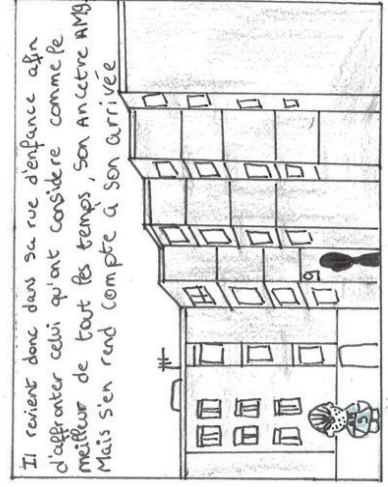 Il revient donc dans sa rue d'enfance afin
d'affronter celui qu'ont considere comme le
meilleur de tout les temps, son Ancetre AMG.
Mais s'en rend compte à son arrivée